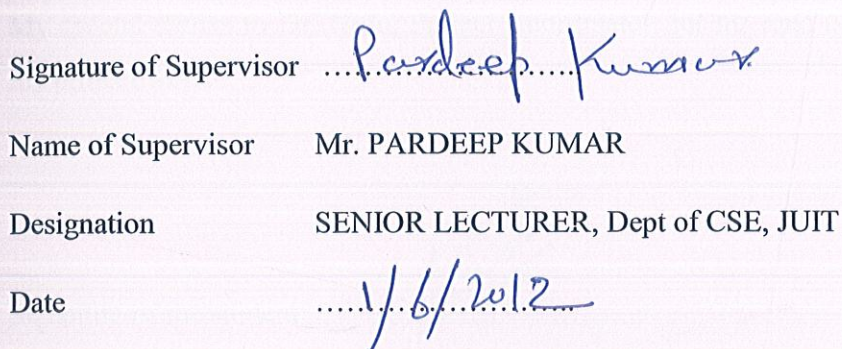 Signature of Supervisor ....Pardeep....Kumar
Name of Supervisor Mr. PARDEEP KUMAR
Designation SENIOR LECTURER, Dept of CSE, JUIT
Date .....1/6/2012